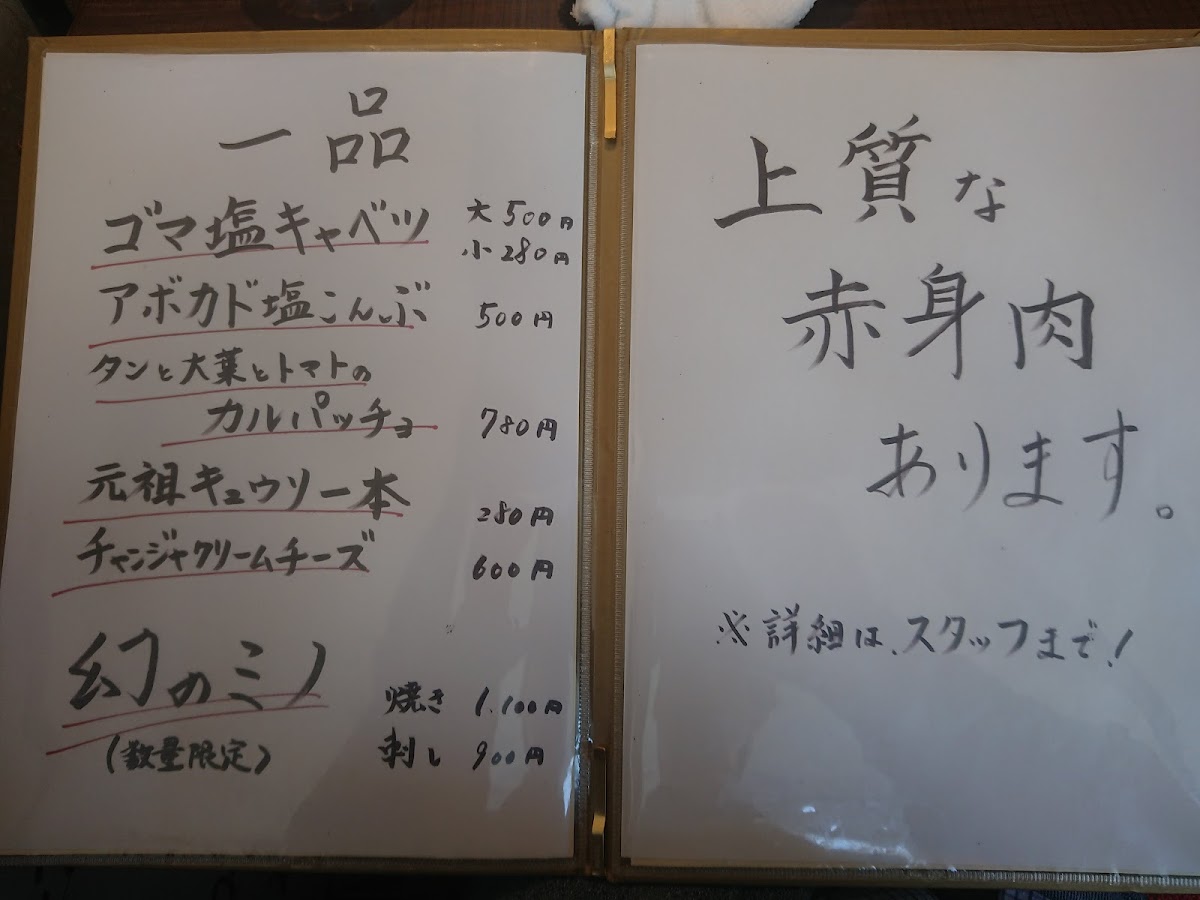 一品
ゴマ塩キャベツ 大500円
小280円
アボカド塩こんぶ 500円
タンと大葉とトマトの
カルパッチョ 780円
元祖キュウリ一本 280円
チャンジャクリームチーズ 600円
幻のミノ 焼き 1.100円
(数量限定) 刺し 900円
上質な
赤身肉
あります。
※詳細は、スタッフまで!